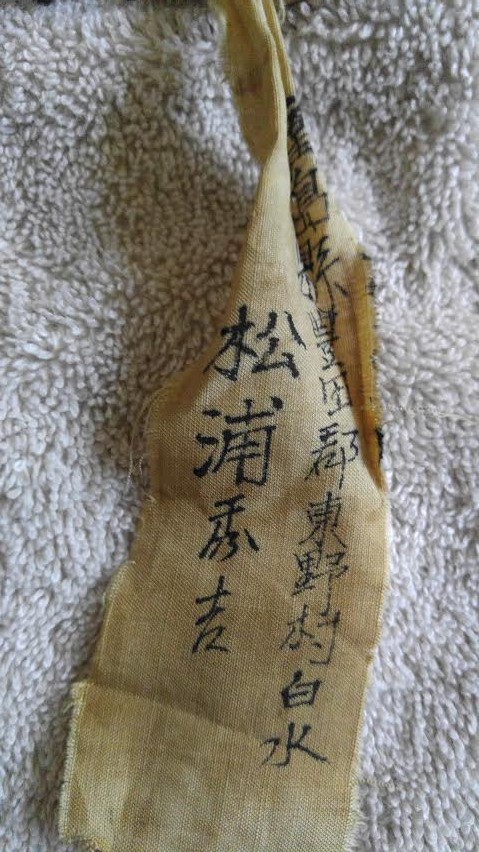 廣島縣豊田郡東野村白水
松浦秀吉